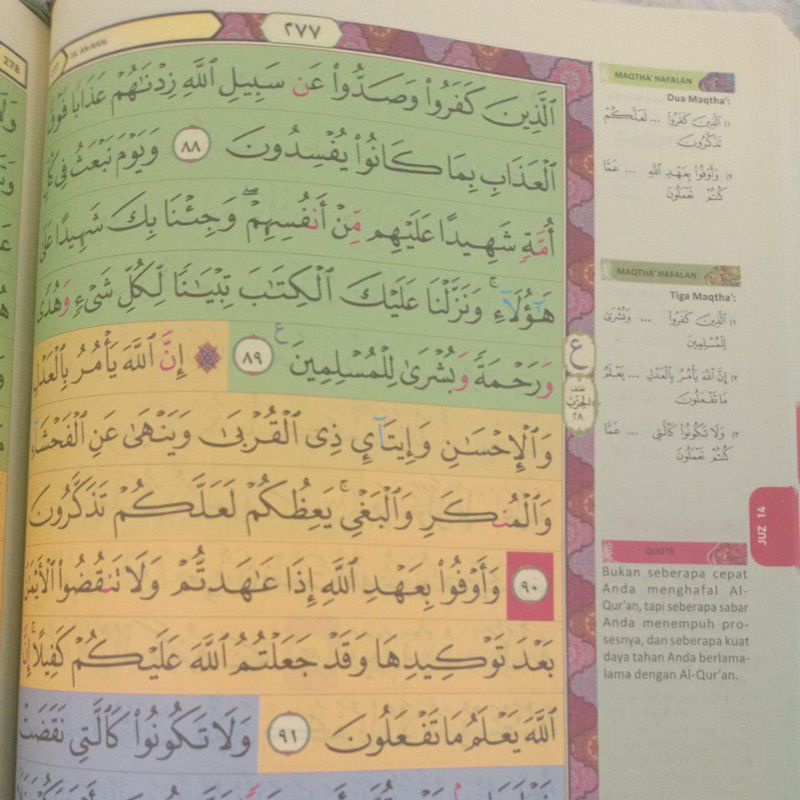 ٢٧٧
278
16. AN-NAHL
ٱلَّذِينَ كَفَرُوا۟ وَصَدُّوا۟ عَن سَبِيلِ ٱللَّهِ زِدْنَٰهُمْ عَذَابًا فَوْقَ
ٱلْعَذَابِ بِمَا كَانُوا۟ يُفْسِدُونَ ٨٨ وَيَوْمَ نَبْعَثُ فِى كُلِّ
أُمَّةٍ شَهِيدًا عَلَيْهِم مِّنْ أَنفُسِهِمْ ۖ وَجِئْنَا بِكَ شَهِيدًا عَلَىٰ
هَٰٓؤُلَآءِ ۚ وَنَزَّلْنَا عَلَيْكَ ٱلْكِتَٰبَ تِبْيَٰنًا لِّكُلِّ شَىْءٍ وَهُدًى
وَرَحْمَةً وَبُشْرَىٰ لِلْمُسْلِمِينَ ع ٨٩ ۞ إِنَّ ٱللَّهَ يَأْمُرُ بِٱلْعَدْلِ
وَٱلْإِحْسَٰنِ وَإِيتَآئِ ذِى ٱلْقُرْبَىٰ وَيَنْهَىٰ عَنِ ٱلْفَحْشَآءِ
وَٱلْمُنكَرِ وَٱلْبَغْىِ ۚ يَعِظُكُمْ لَعَلَّكُمْ تَذَكَّرُونَ
٩٠ وَأَوْفُوا۟ بِعَهْدِ ٱللَّهِ إِذَا عَٰهَدتُّمْ وَلَا تَنقُضُوا۟ ٱلْأَيْمَٰنَ
بَعْدَ تَوْكِيدِهَا وَقَدْ جَعَلْتُمُ ٱللَّهَ عَلَيْكُمْ كَفِيلًا ۚ إِنَّ
ٱللَّهَ يَعْلَمُ مَا تَفْعَلُونَ ٩١ وَلَا تَكُونُوا۟ كَٱلَّتِى نَقَضَتْ
ع
نصف
الحزب
٢٨
MAQTHA' HAFALAN
Dua Maqtha':
١) الَّذِينَ كَفَرُوا ... لَعَلَّكُمْ
تَذَكَّرُونَ
٢) وَأَوْفُوا بِعَهْدِ اللَّهِ ... عَمَّا
كُنتُمْ تَعْمَلُونَ
MAQTHA' HAFALAN
Tiga Maqtha':
١) الَّذِينَ كَفَرُوا ... وَبُشْرَىٰ
لِلْمُسْلِمِينَ
٢) إِنَّ اللَّهَ يَأْمُرُ بِالْعَدْلِ ... يَعْلَمُ
مَا تَفْعَلُونَ
٣) وَلَا تَكُونُوا كَالَّتِي ... عَمَّا
كُنتُمْ تَعْمَلُونَ
JUZ 14
QUOTE
Bukan seberapa cepat
Anda menghafal Al-
Qur'an, tapi seberapa sabar
Anda menempuh pro-
sesnya, dan seberapa kuat
daya tahan Anda berlama-
lama dengan Al-Qur'an.